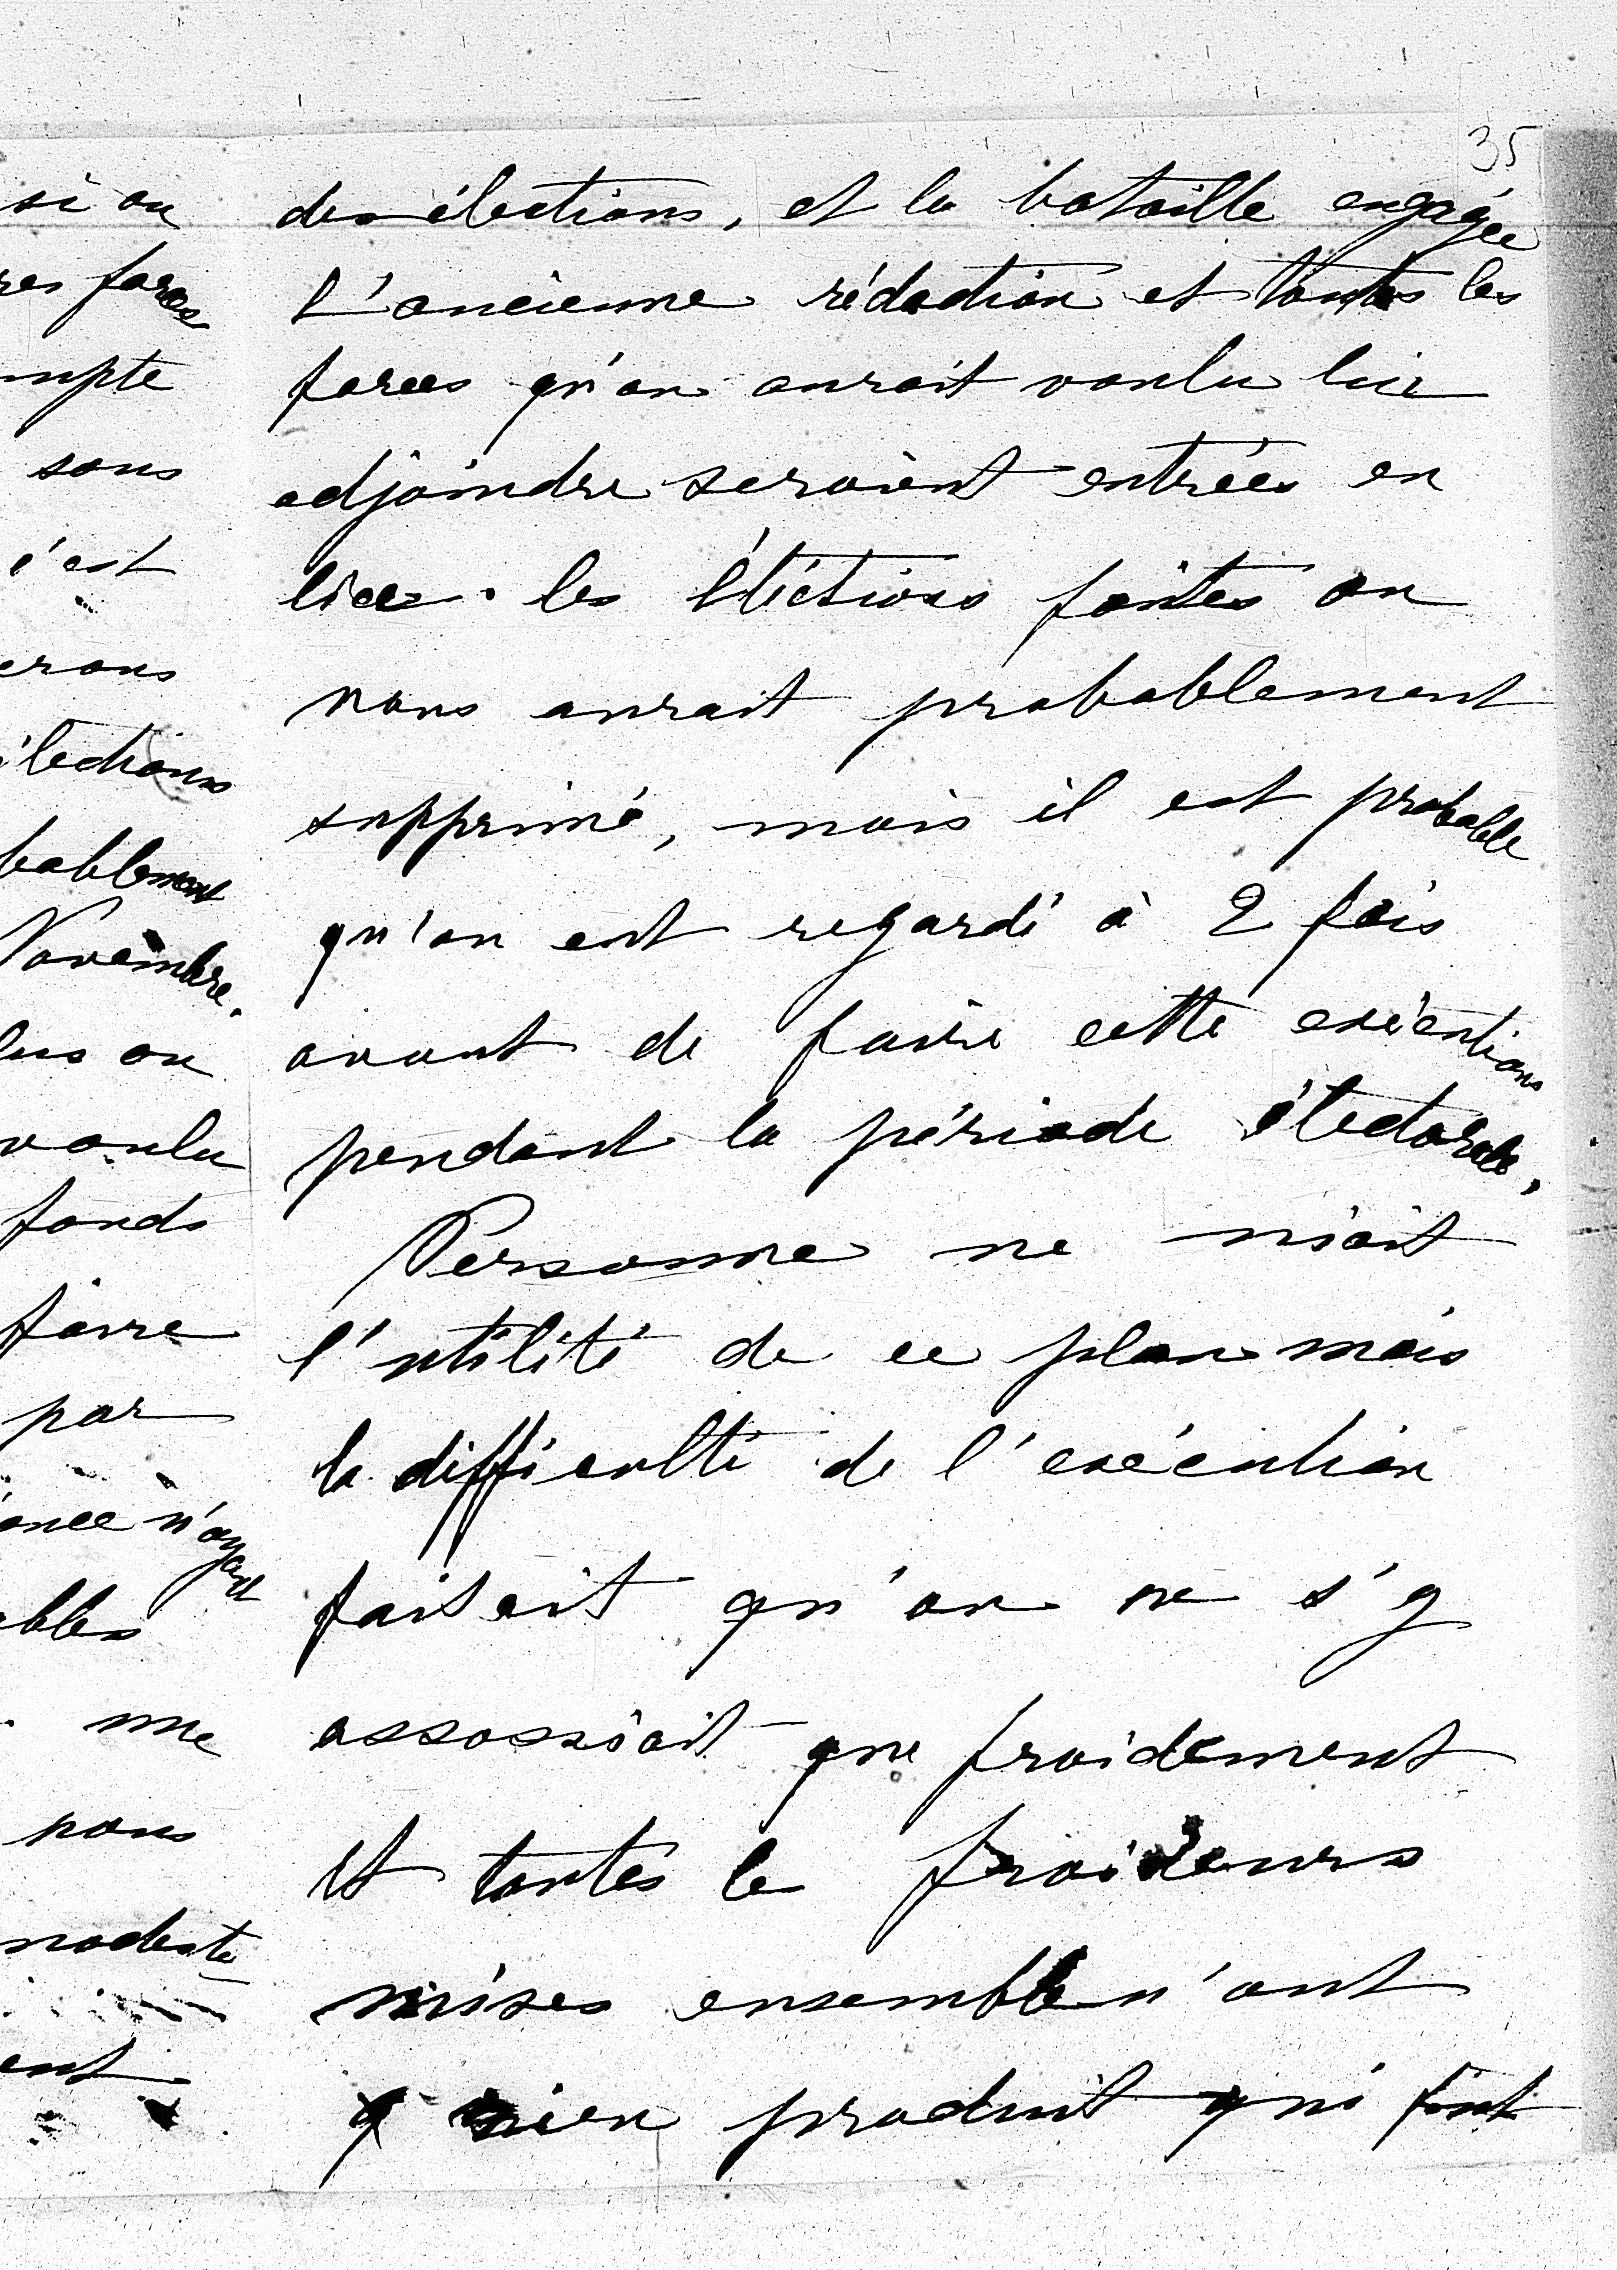 35
des élections, et la bataille engagée
l'ancienne rédaction et toutes les
forces qu'on aurait voulu lui
adjoindre seraient entrées en
lice. les éléctions faites on
nous aurait probablement
supprimé, mais il est probable
qu'on eut regardé à 2 fois
avant de faire cette exécutions
pendant la période électorale,
Personne ne niait
l'utilité de ce plan mais
la difficulté de l'exécution
faisait qu'on ne s'y
assossiait que froidement
Et toutes le froideurs
mises ensemble n'ont
rien produit qui fut
si on
res forces
mpte
sous
c'est
erons
élections
bablement
Novembre.
lus on
voulu
fonds
faire
par
ance n'ayant
ables
une
nous
modeste
ent